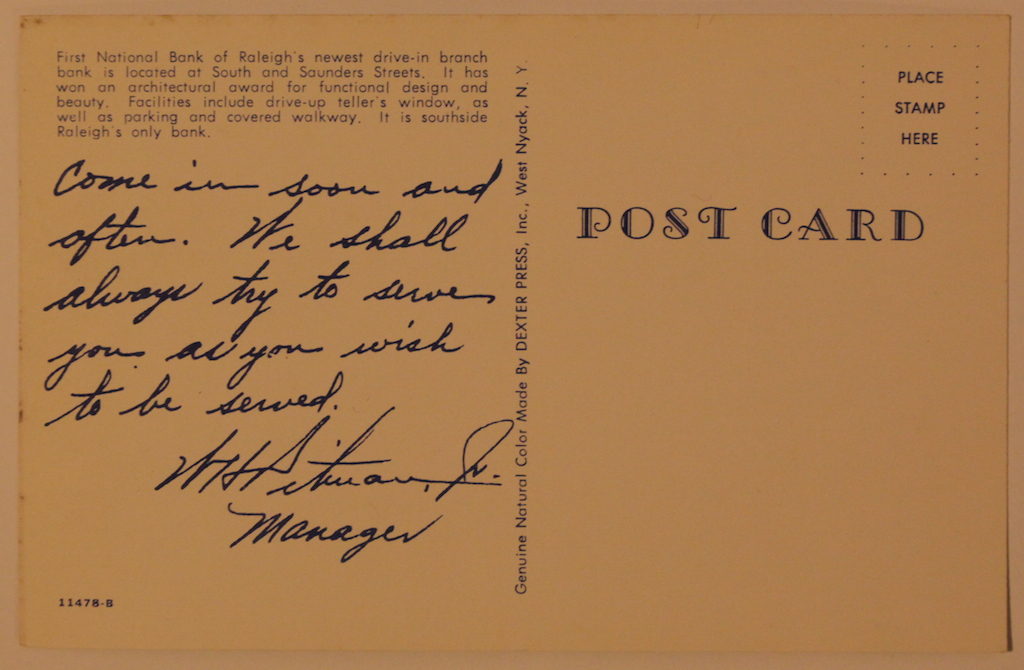 First National Bank of Raleigh's newest drive-in branch
bank is located at South and Saunders Streets. It has
won an architectural award for functional design and
beauty. Facilities include drive-up teller's window, as
well as parking and covered walkway. It is southside
Raleigh's only bank.
Come in soon and
often. We shall
always try to serve
you as you wish
to be served.
Jr.
Manager
11478-B
Genuine Natural Color Made By DEXTER PRESS, Inc., West Nyack, N. Y.
PLACE
STAMP
HERE
POST CARD